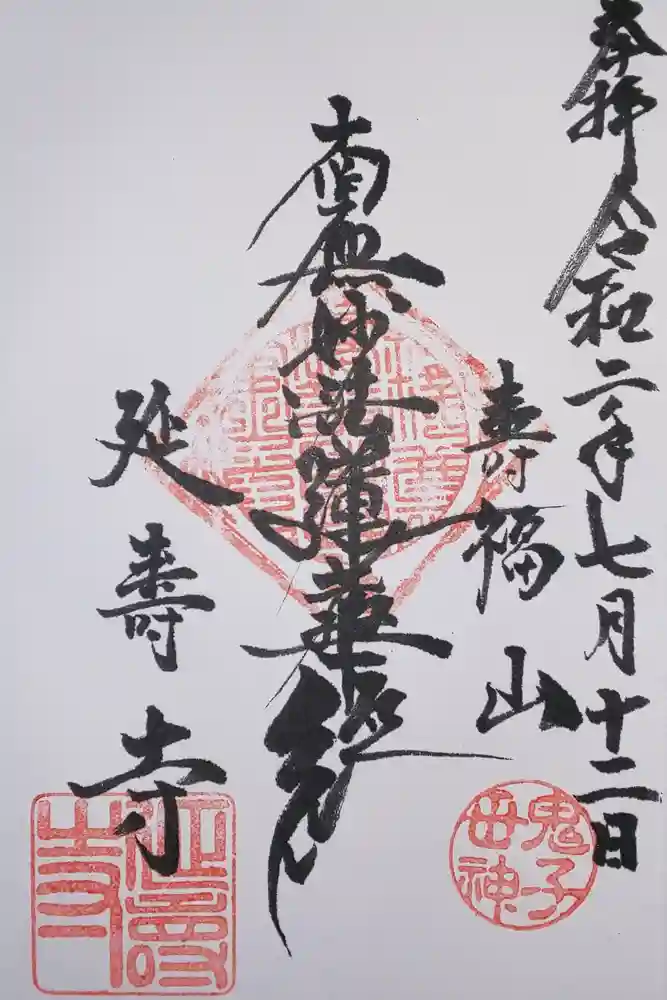 奉拝 令和二年七月十二日
壽福山
南無妙法蓮華経
延壽寺
鬼子
母神
延壽
寺